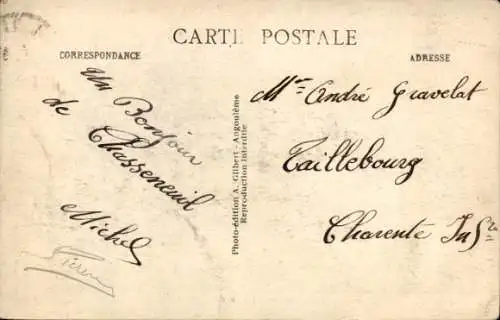 CARTE POSTALE
CORRESPONDANCE
ADRESSE
Un Bonjour
de Chasseneuil
Michel
Photo-édition A. Gilbert - Angoulême
Reproduction Interdite
Mr André Gravelat
Taillebourg
Charente Infre